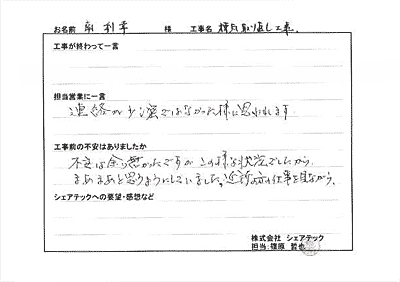 お名前 様 工事名 樋 取り直し工事
工事が終わって一言
担当営業に一言
連絡が少し蜜ではなかった様に思われます
工事前の不安はありましたか
不安は余り感かったですが この様な状況でしたから
まあまあと思うようにしていました。近所の仕事を見ながら。
シェアテックへの要望・感想など
株式会社 シェアテック
担当:篠原 哲也